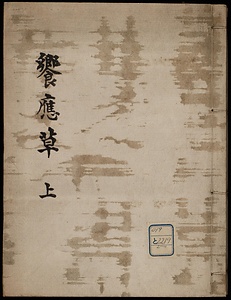 饗應草 上